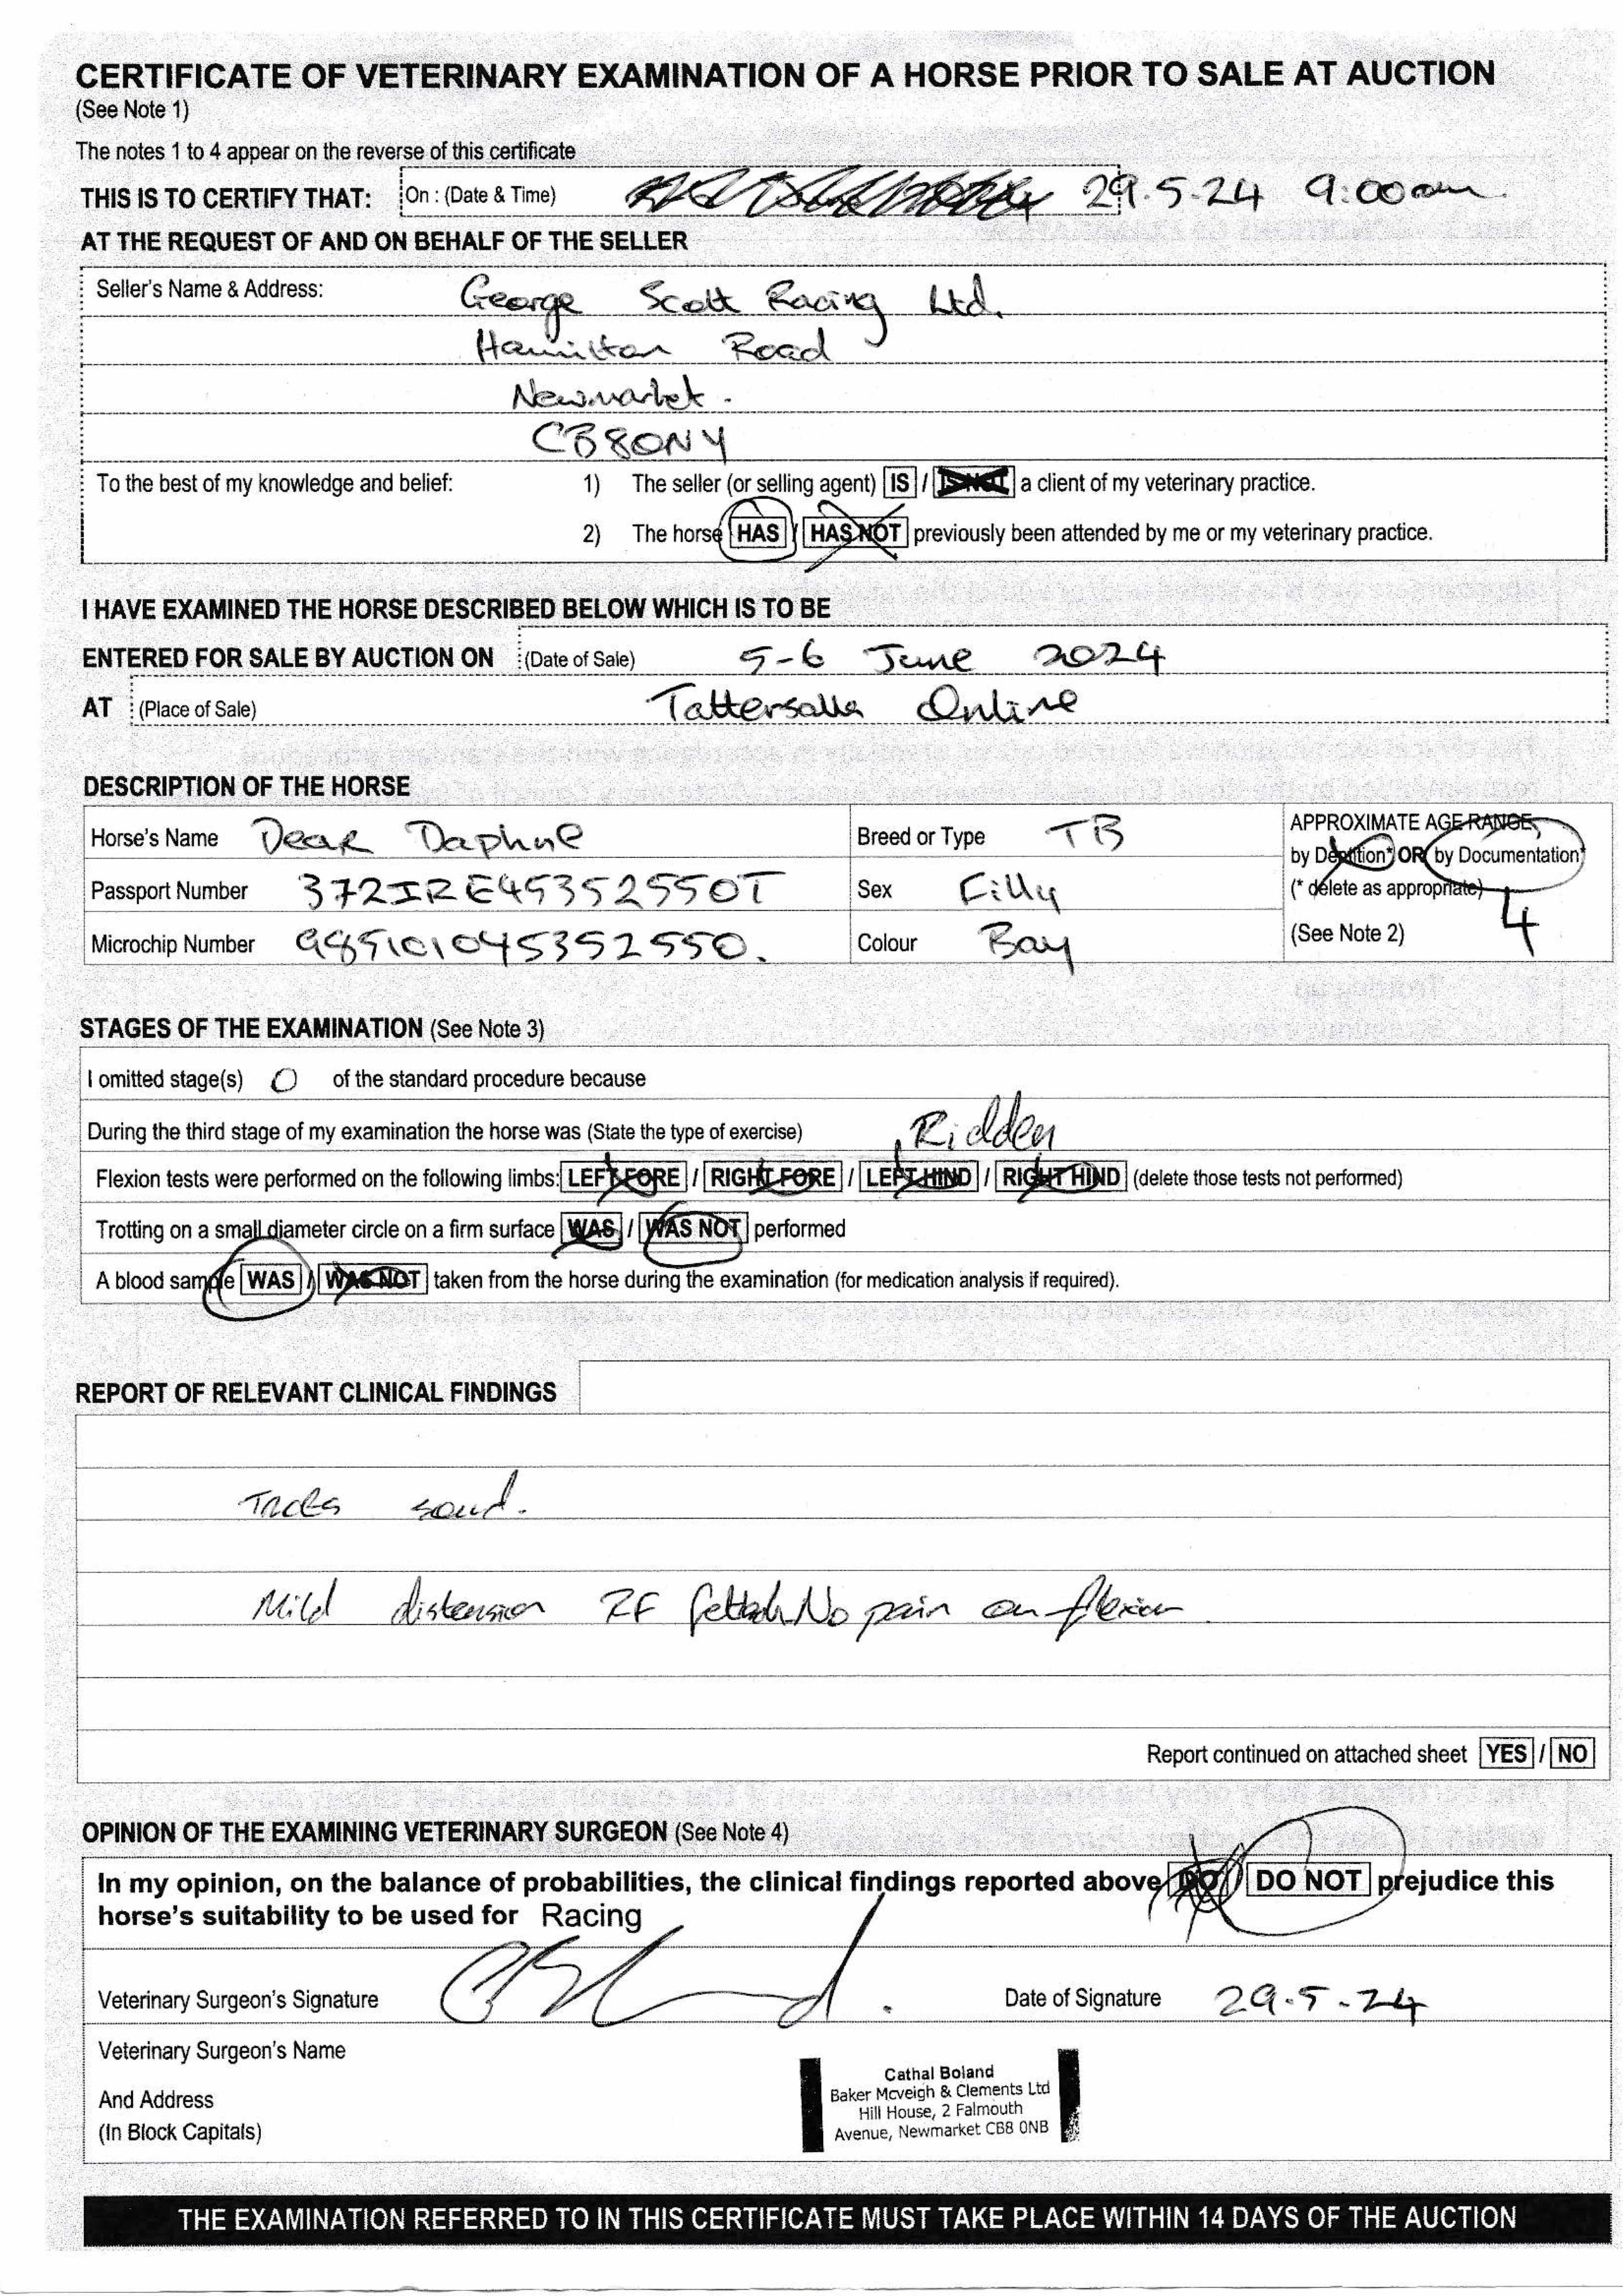 CERTIFICATE OF VETERINARY EXAMINATION OF A HORSE PRIOR TO SALE AT AUCTION
(See Note 1)
The notes 1 to 4 appear on the reverse of this certificate
THIS IS TO CERTIFY THAT: On : (Date & Time) 29.5.24 9:00am
AT THE REQUEST OF AND ON BEHALF OF THE SELLER
Seller's Name & Address: George Scott Racing Ltd.
Hamilton Road
Newmarket.
CB80NY
To the best of my knowledge and belief: 1) The seller (or selling agent) IS / IS NOT a client of my veterinary practice.
2) The horse HAS / HAS NOT previously been attended by me or my veterinary practice.
I HAVE EXAMINED THE HORSE DESCRIBED BELOW WHICH IS TO BE
ENTERED FOR SALE BY AUCTION ON (Date of Sale) 5-6 June 2024
AT (Place of Sale) Tattersalls Online
DESCRIPTION OF THE HORSE
Horse's Name Dear Daphne Breed or Type TB APPROXIMATE AGE RANGE,
by Dentition* OR by Documentation*
Passport Number 372IRE45352550T Sex Filly (* delete as appropriate)
4
Microchip Number 985101045352550. Colour Bay (See Note 2)
STAGES OF THE EXAMINATION (See Note 3)
I omitted stage(s) 0 of the standard procedure because
During the third stage of my examination the horse was (State the type of exercise) Ridden
Flexion tests were performed on the following limbs: LEFT FORE / RIGHT FORE / LEFT HIND / RIGHT HIND (delete those tests not performed)
Trotting on a small diameter circle on a firm surface WAS / WAS NOT performed
A blood sample WAS / WAS NOT taken from the horse during the examination (for medication analysis if required).
REPORT OF RELEVANT CLINICAL FINDINGS
Trots sound.
Mild distension RF fetlock. No pain on flexion.
Report continued on attached sheet YES / NO
OPINION OF THE EXAMINING VETERINARY SURGEON (See Note 4)
In my opinion, on the balance of probabilities, the clinical findings reported above DO / DO NOT prejudice this
horse's suitability to be used for Racing
Veterinary Surgeon's Signature Date of Signature 29.5.24
Veterinary Surgeon's Name
And Address
(In Block Capitals)
Cathal Boland
Baker Mcveigh & Clements Ltd
Hill House, 2 Falmouth
Avenue, Newmarket CB8 0NB
THE EXAMINATION REFERRED TO IN THIS CERTIFICATE MUST TAKE PLACE WITHIN 14 DAYS OF THE AUCTION